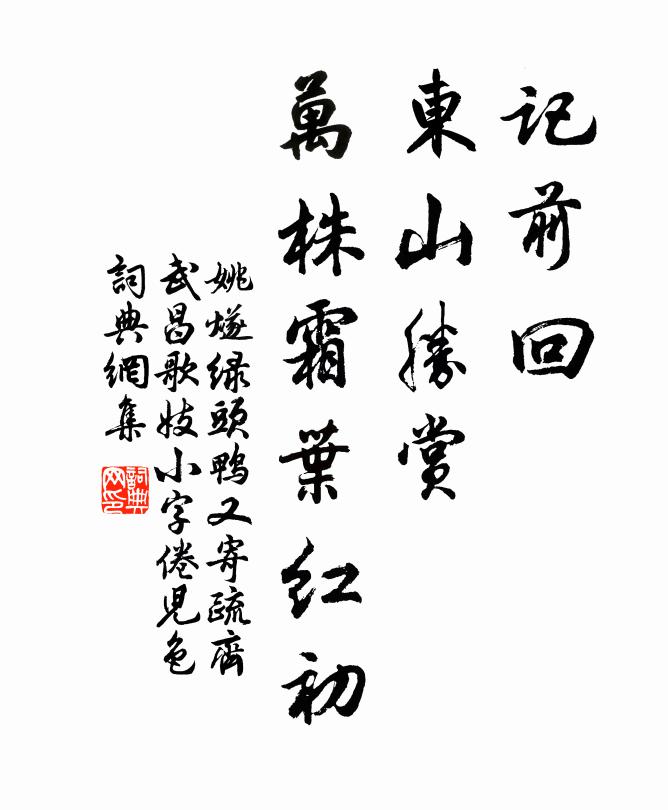 記前回
東山勝賞
萬株霜葉紅初
姚燧緑頭鴨又寄疏齋
武昌歌妓小字倦児色
詞典網集
詞典
网印